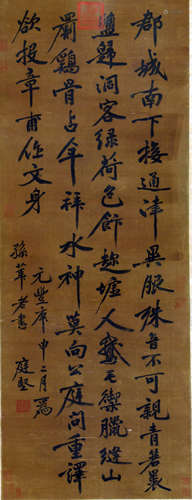 郡城南下接通津異服殊音不可親青箬裹
鹽歸洞客綠荷包飯趁墟人鵞毛禦臘縫山
罽鷄骨占年拜水神莫向公庭問重譯
欲投章甫作文身
元豐庚申二月為
孫莘老書 庭堅